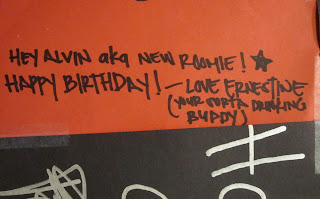 HEY ALVIN aka NEW ROOMIE! ★
HAPPY BIRTHDAY! — LOVE ERNESTINE
(YOUR SORTA DRINKING
BUDDY)